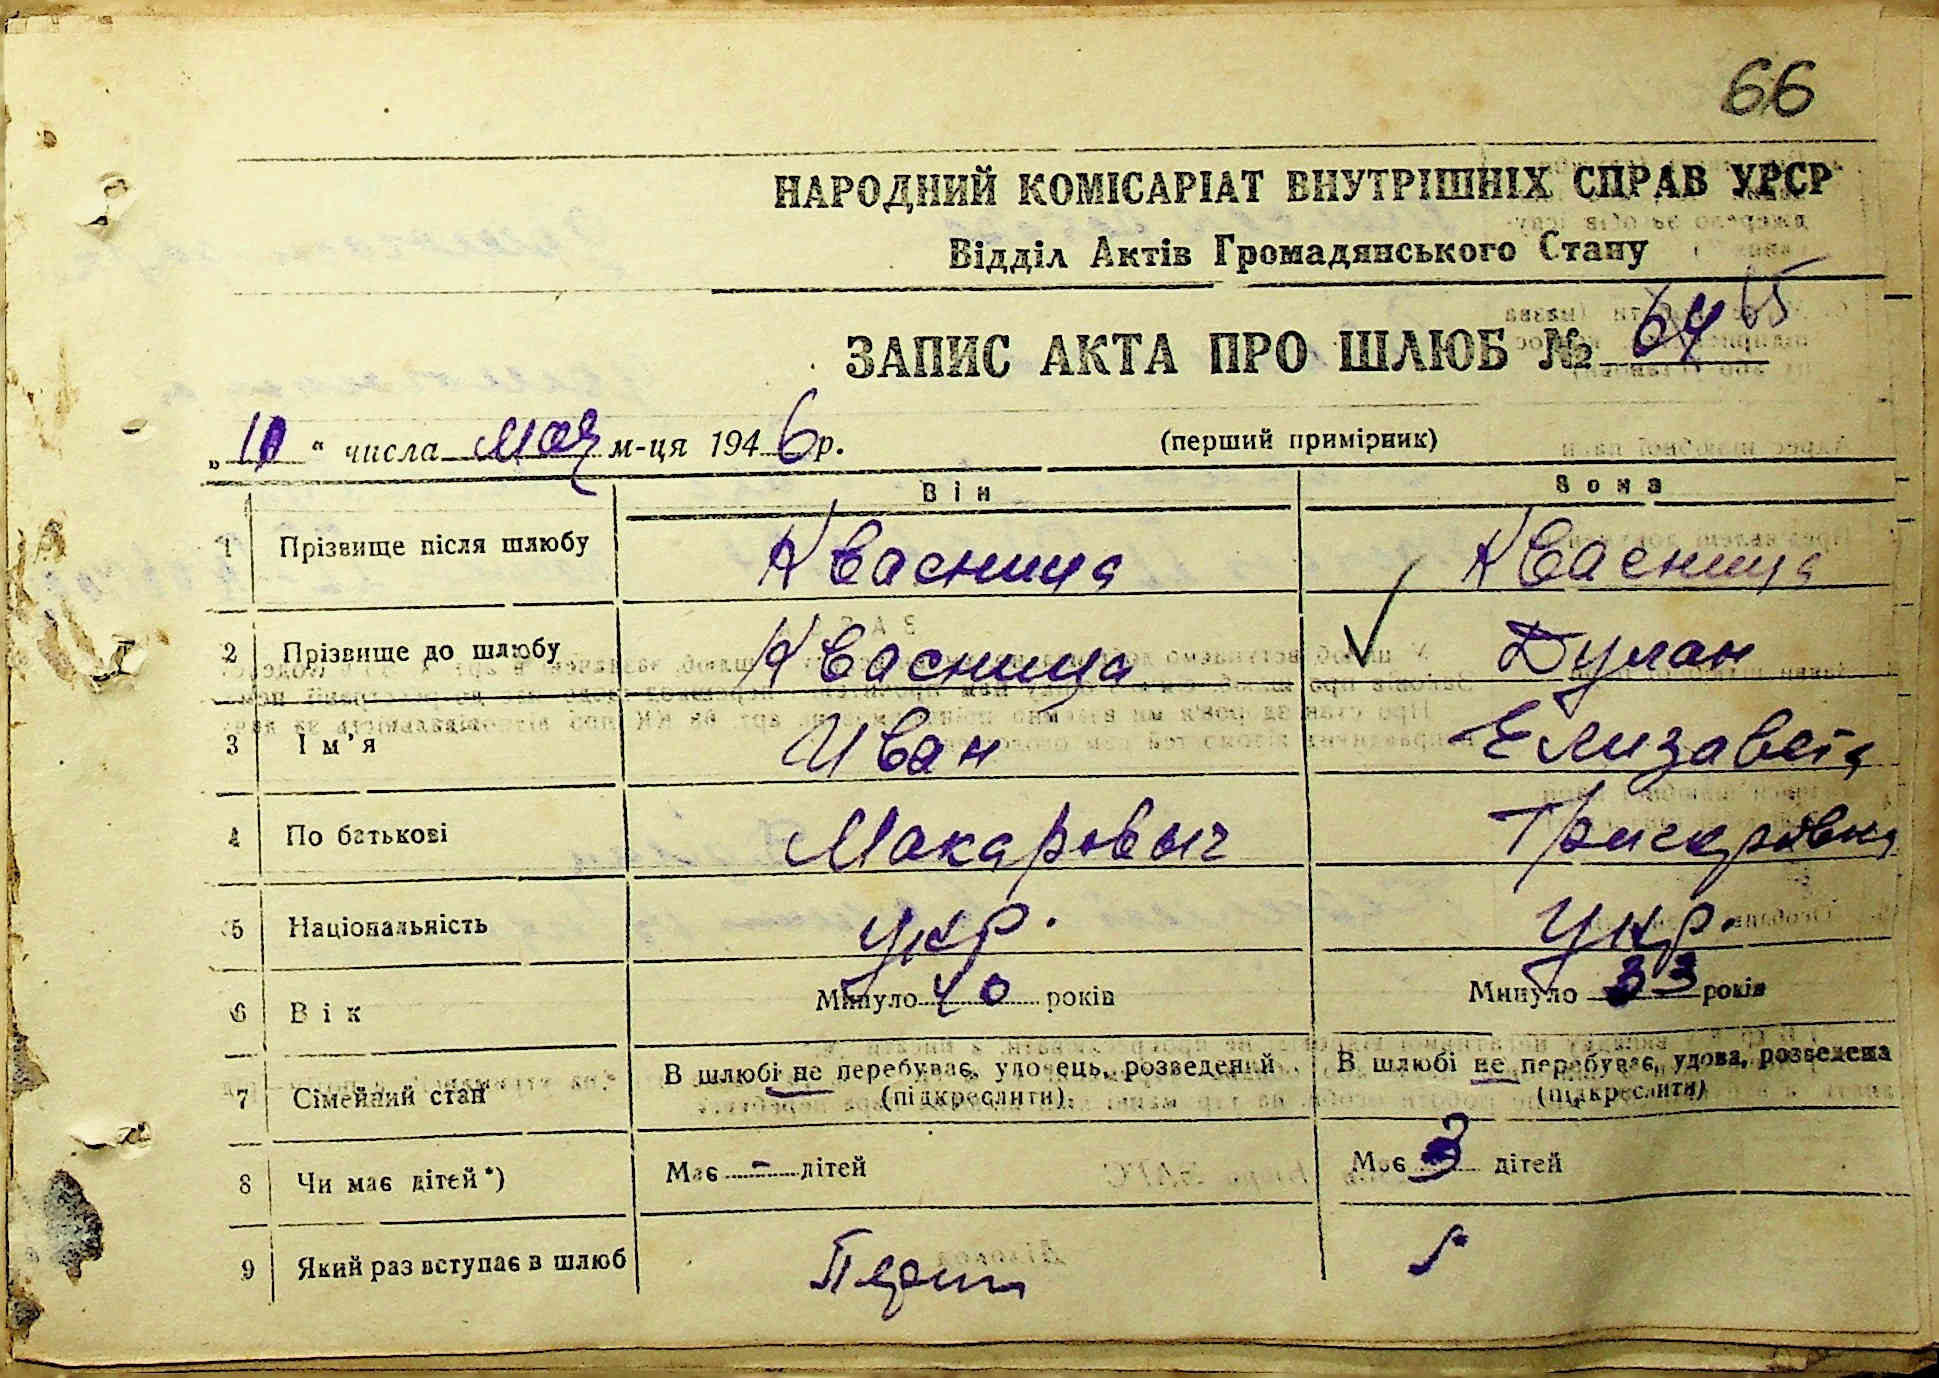 66
НАРОДНИЙ КОМІСАРІАТ ВНУТРІШНІХ СПРАВ УРСР
Відділ Актів Громадянського Стану
ЗАПИС АКТА ПРО ШЛЮБ № 64 65
„ 10 “ числа мая м-ця 194 6 р. (перший примірник)
Він Вона
1 Прізвище після шлюбу Квасница Квасница
2 Прізвище до шлюбу Квасница Дулан
3 Ім’я Иван Елизавета
4 По батькові Макаровыч
5 Національність укр. Укр.
6 Вік Минуло 40 років Минуло 33 років
7 Сімейний стан В шлюбі не перебуває, удовець, розведений (підкреслити) В шлюбі не перебуває, удова, розведена (підкреслити)
8 Чи має дітей*) Має - дітей Має 3 дітей
9 Який раз вступає в шлюб